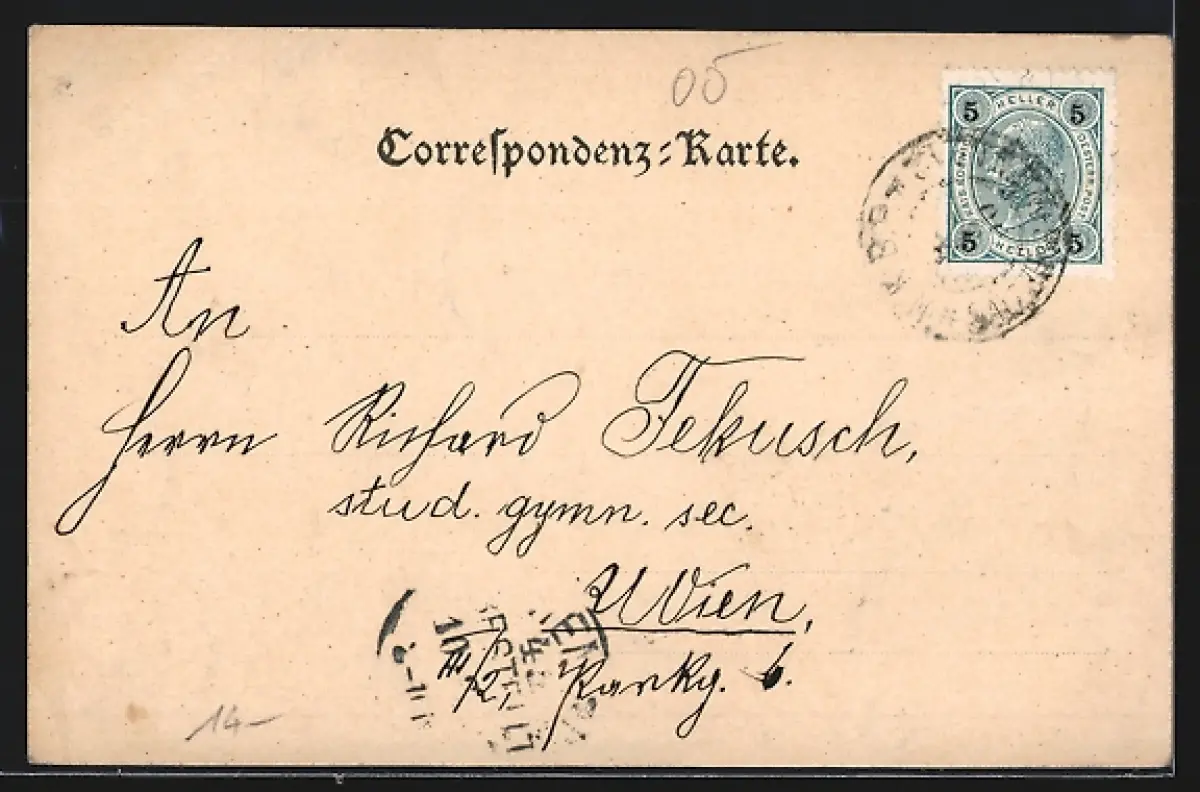 05
Correspondenz-Karte.
5 HELLER 5
5 HELLER 5
An
Herrn Richard Tekusch,
stud. gymn. sec.
Wien,
III/2, 6.
14-